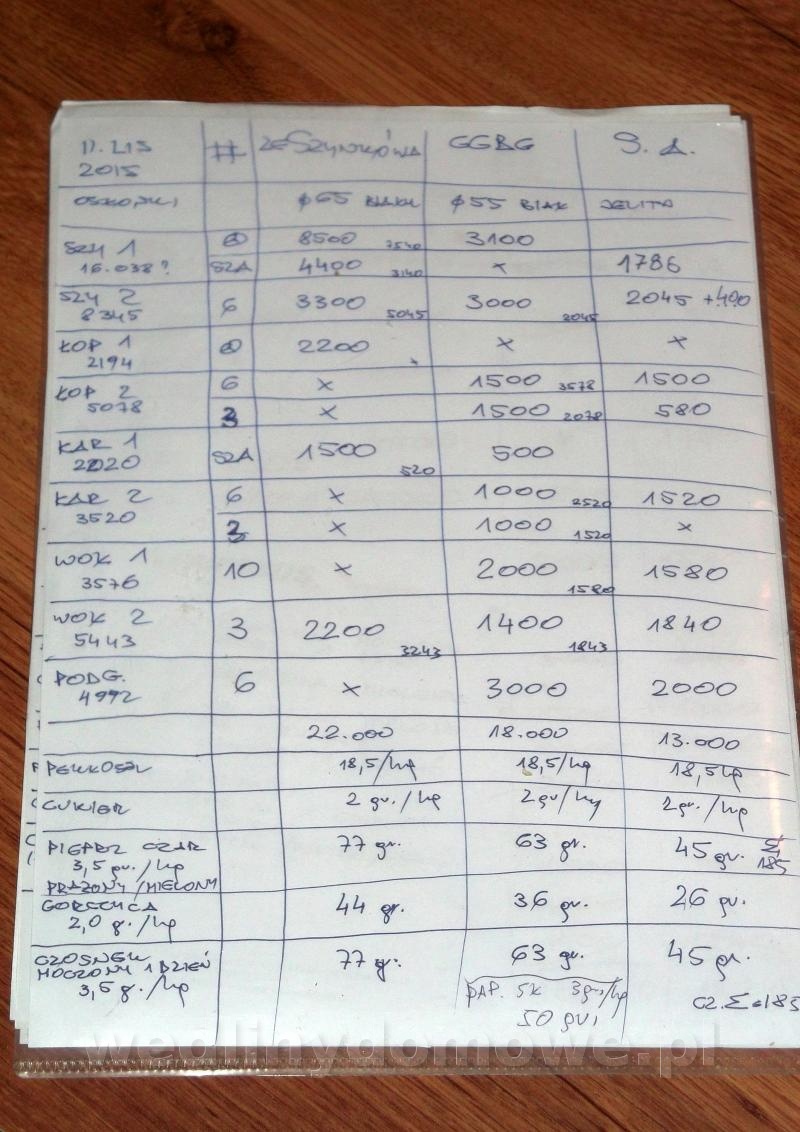 11. LIS # ZESZYNKÓWA GGBG S. A.
2015
OSŁONKI Φ65 BIAŁA Φ55 BIAŁ JELITA
SZY 1 8500 7540 3100
16.038? SZA 4400 3140 x 1786
SZY 2 6 3300 5045 3000 2045 2045 +400
8345
ŁOP 1 2200 x x
2194
ŁOP 2 6 x 1500 3578 1500
5078 3 x 1500 2078 580
KAR 1 SZA 1500 520 500
2020
KAR 2 6 x 1000 2520 1520
3520 3 x 1000 1520 x
WOŁ 1 10 x 2000 1580 1580
3576
WOŁ 2 3 2200 3243 1400 1843 1840
5443
PODG. 6 x 3000 2000
4992
22.000 18.000 13.000
PEKLOSÓL 18,5/kg 18,5/kg 18,5kg
CUKIER 2 gr./kg 2gr/kg 2gr./kg
PIEPRZ CZAR 77 gr. 63 gr. 45 gr. Σ
3,5 gr./kg 185
PRAŻONY/MIELONY
GORCZYCA 44 gr. 36 gr. 26 gr.
2,0 g./kg
CZOSNEK 77 gr. 63 gr. 45 gr.
MOCZONY 1 DZIEŃ
3,5 g./kg PAP. SŁ 3gr/kg CZ. Σ=185
50 gr
wedlinydomowe.pl